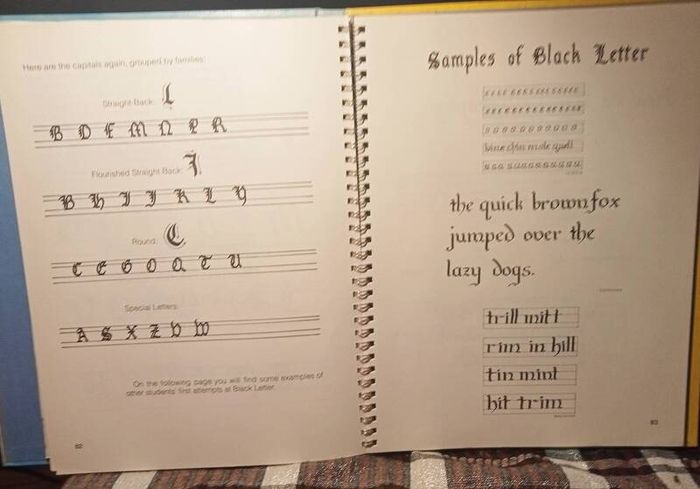 Here are the capitals again, grouped by families:
Straight-Back: L
B D E M N P R
Flourished Straight Back: J
B H I J K L Y
Round: C
C E G O Q T U
Special Letters:
A S X Z V W
On the following page you will find some examples of
other students' first attempts at Black Letter.
82
Samples of Black Letter
the quick brown fox
jumped over the
lazy dogs.
trill mitt
rim in hill
tin mint
hit trim
83